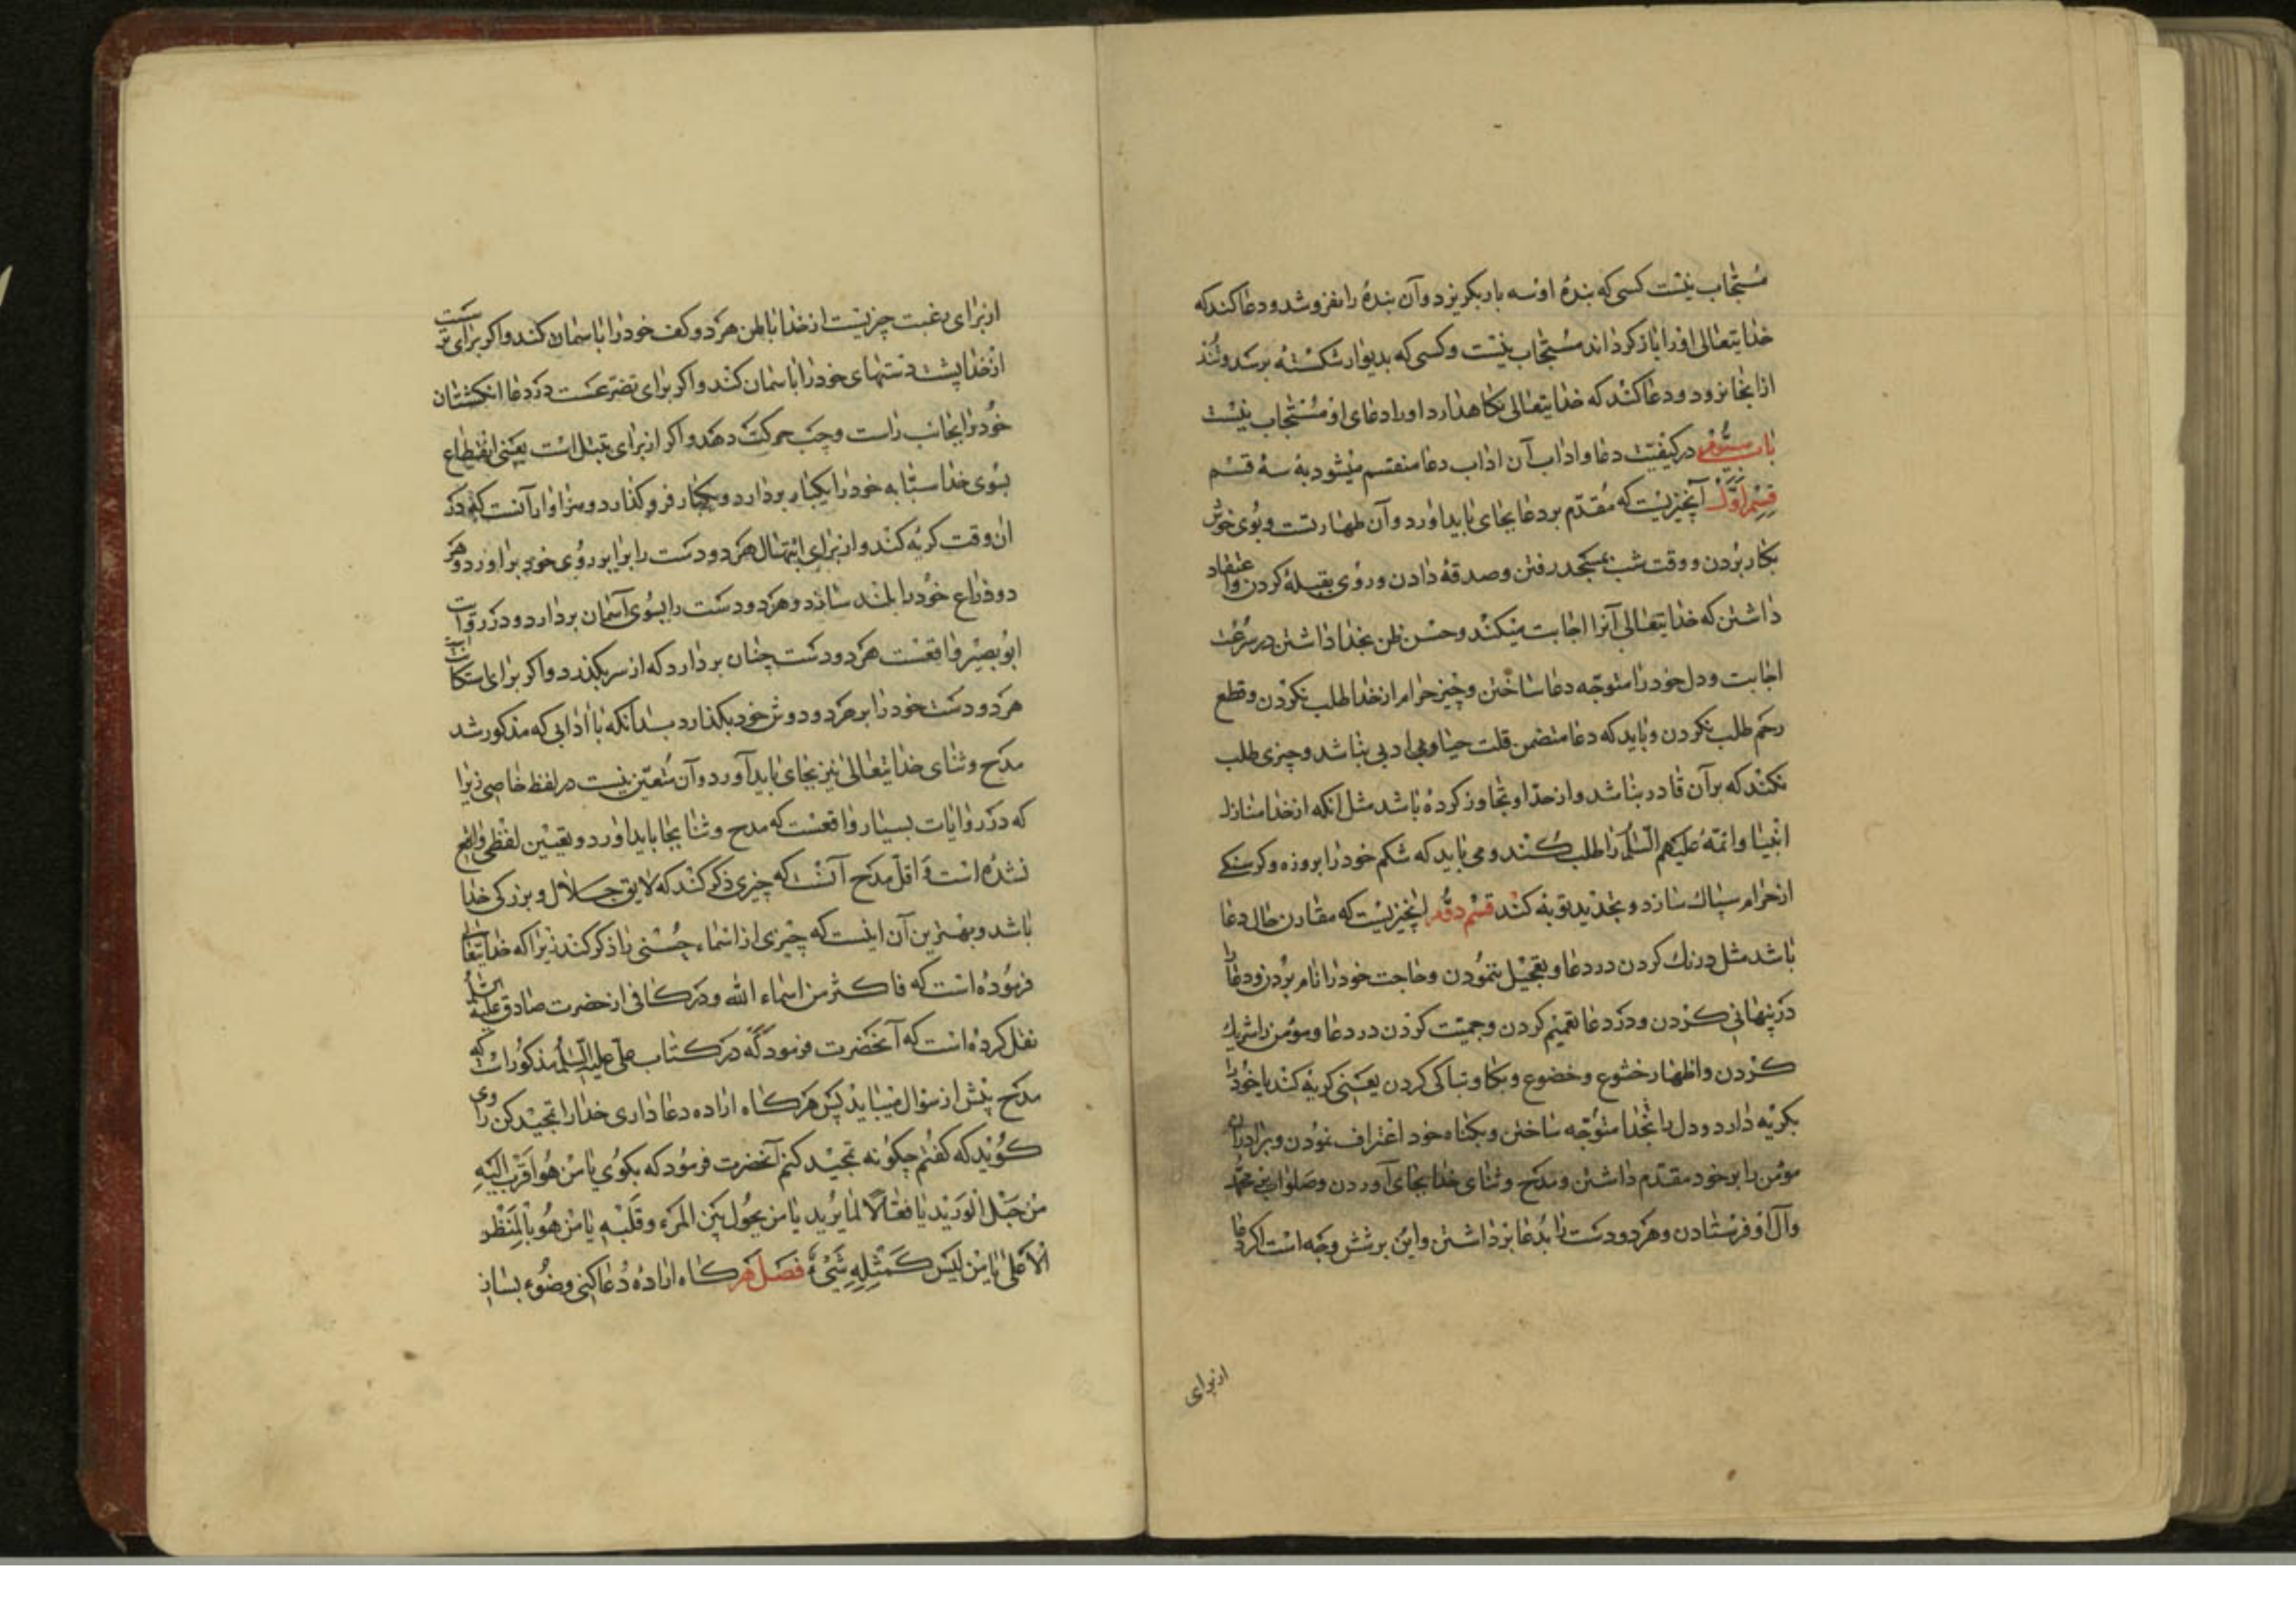 مستجاب نیست کسی که بنده او سه بار بکریزد و آن بنده را نفروشد و دعا کند که
خدایتعالی او را باز کرداند مستجاب نیست و کسی که بدیوار شکسته برسد و تند
از انجا نرود و دعا کند که خدایتعالی نکاهدارد او را دعای او مستجاب نیست
باب سیوم در کیفیت دعا و اداب آن اداب دعا منقسم میشود به سه قسم
قسم اول آنچیزیست که مقدم بر دعا بجای باید اورد و آن طهارتست و بوی خوش
بکار بردن و وقت شب بمسجد رفتن و صدقه دادن و روی بقبله کردن و اعتقاد
داشتن که خدایتعالی آنرا اجابت میکند و حسن ظن بخدا داشتن در سرعت
اجابت و دل خود را متوجه دعا ساختن و چیز حرام از خدا طلب نکردن و قطع
رحم طلب نکردن و باید که دعا متضمن قلت حیا و بی ادبی نباشد و چیزی طلب
نکند که بر آن قادر نباشد و از حد او تجاوز کرده باشد مثل آنکه از خدا منازل
انبیا و ائمه علیهم السلم را طلب کند و می باید که شکم خود را بروزه و کرسنکی
از حرام پاک سازد و تجدید توبه کند قسم دوم انچیزیست که مقارن حال دعا
باشد مثل درنک کردن در دعا و تعجیل ننمودن و حاجت خود را نام بردن و دعا را
در پنهانی کردن و در دعا تعمیم کردن و جمعیت کردن در دعا و مومن را شریک
کردن و اظهار خشوع و خضوع و بکا و تباکی کردن یعنی کریه کند یا خود را
بکریه دارد و دل را بخدا متوجه ساختن و بکناه خود اعتراف نمودن و برادران
مومن را بر خود مقدم داشتن و مدح و ثنای خدا بجای آوردن و صلوات بر محمد
و آل او فرستادن و هر دو دست را بدعا برداشتن و این بر شش وجه است اکر دعا
از برای
از برای رغبت چیزیست از خدا باطن هر دو کف خود را باسمان کند و اکر برای ترست
از خدا پشت دستهای خود را باسمان کند و اکر برای تضرعست در دعا انکشتان
خود را بجانب راست و چپ حرکت دهد و اکر از برای تبتل است یعنی انقطاع
بسوی خدا سبابه خود را یکبار بردارد و یکبار فرو کذارد و سزاوار آنست که در
ان وقت کریه کند و از برای ابتهال هر دو دست را برابر روی خود براورد و هر
دو ذراع خود را بلند سازد و هر دو دست را بسوی آسمان بردارد و در روایت
ابو بصیر واقعست هر دو دست چنان بردارد که از سر بکذرد و اکر برای استکانت
هر دو دست خود را بر هر دو دوش خود بکذارد بدانکه با ادابی که مذکور شد
مدح و ثنای خدایتعالی نیز بجای باید آورد و آن متعین نیست در لفظ خاصی زیرا
که در روایات بسیار واقعست که مدح و ثنا بجا باید اورد و تعیین لفظی واقع
نشده است و اقل مدح آنست که چیزی ذکر کند که لایق جلال و بزرکی خدا
باشد و بهترین آن اینست که چیزی از اسماء حسنی را ذکر کند زیرا که خدایتعالی
فرموده است که فاکثر من اسماء الله و در کافی از حضرت صادق علیه السلم
نقل کرده است که آنحضرت فرمود که در کتاب علی علیه السلم مذکور است که
مدح پیش از سؤال میباید پس هرکاه اراده دعا داری خدا را تمجید کن راوی
کوید که کفتم چکونه تمجید کنم آنحضرت فرمود که بکوی یا من هو اقرب الیه
من حبل الورید یا فعالا لما یرید یا من یحول بین المرء و قلبه یا من هو بالمنظر
الاعلی یا من لیس کمثله شیء فصل هرکاه اراده دعا کنی وضوء بساز